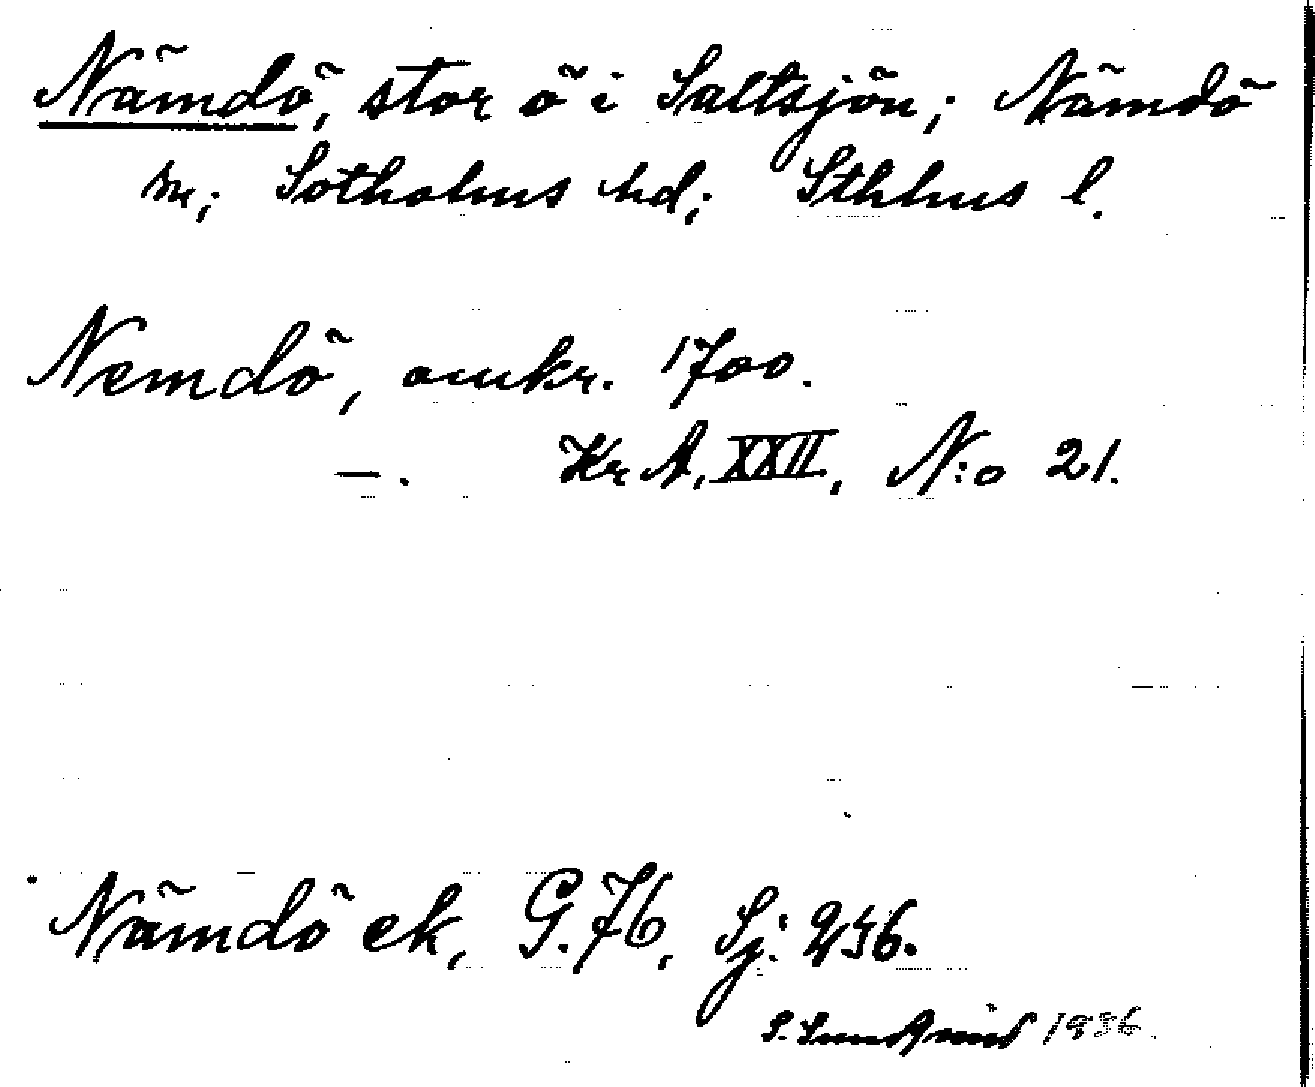 Nämdö, stor ö i Saltsjön; Nämdö
sn; Sotholms hd; Sthlms l.
Nemdö, omkr. 1700.
—. Kr A, XXII, N:o 21.
Nämdö ek, G. 76, Sj: 236.
S. Sundqvist 1936